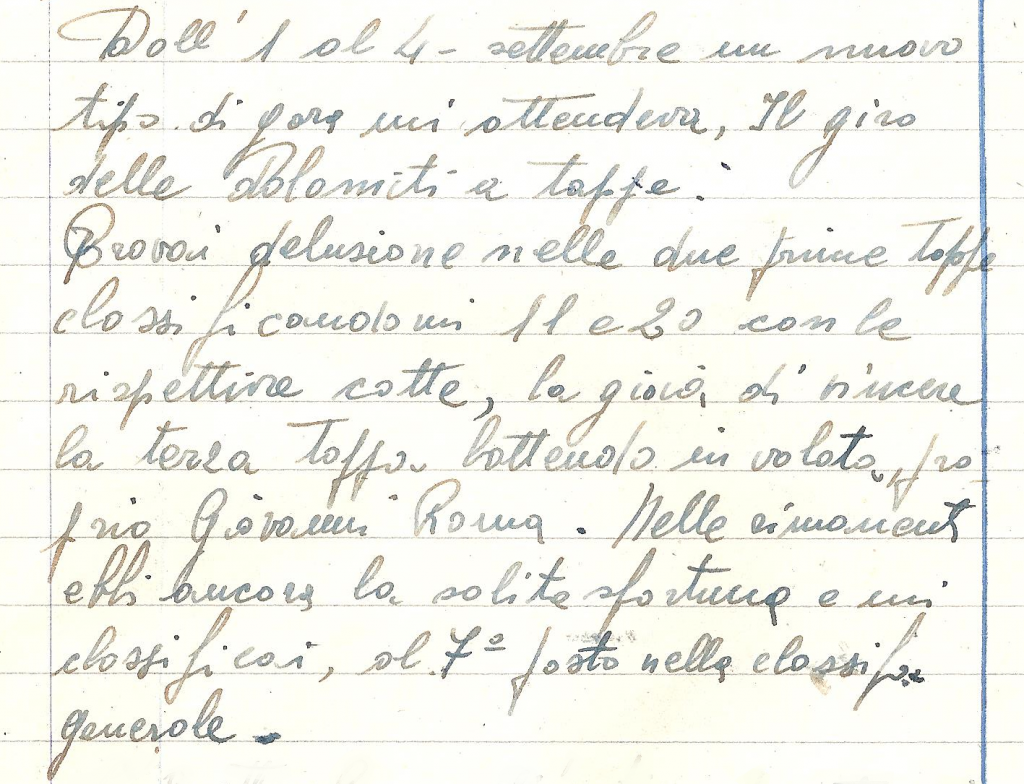 Dall' 1 al 4 - settembre un nuovo
tipo di gara mi attendeva, Il giro
delle Dolomiti a tappe.
Provai delusione nelle due prime tappe
classificandomi 11 e 20 con le
rispettive cotte, la gioia di vincere
la terza tappa battendo in volata, pro-
prio Giovanni Roma. Nelle rimanenti
ebbi ancora la solita sfortuna e mi
classificai, al 7º posto nella classifica
generale.